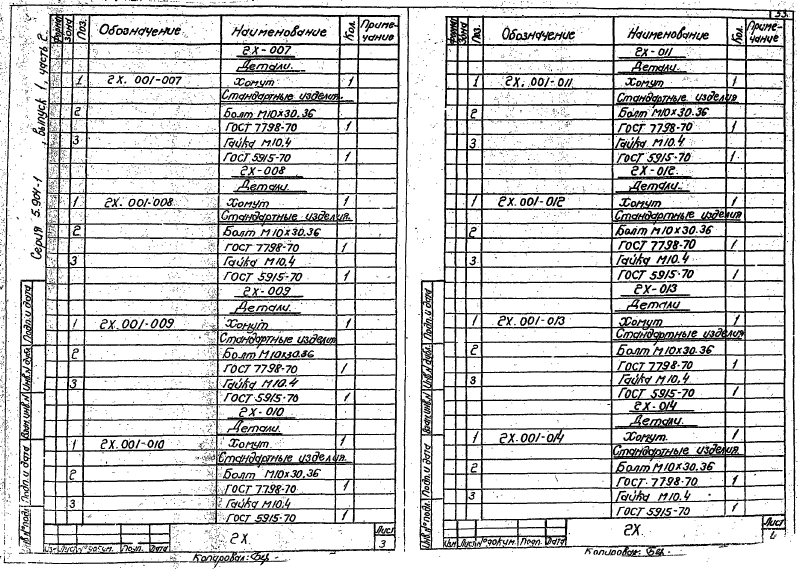 Серия 5.901-1, выпуск 1, часть 2.
Форма Зона Поз. Обозначение Наименование Кол. Приме-чание
2Х-007
Детали.
1 2Х.001-007 Хомут 1
Стандартные изделия.
2 Болт М10х30.36
ГОСТ 7798-70 1
3 Гайка М10.4
ГОСТ 5915-70 1
2Х-008
Детали.
1 2Х.001-008 Хомут 1
Стандартные изделия.
2 Болт М10х30.36
ГОСТ 7798-70 1
3 Гайка М10.4
ГОСТ 5915-70 1
2Х-009
Детали.
1 2Х.001-009 Хомут 1
Стандартные изделия
2 Болт М10х30.36
ГОСТ 7798-70 1
3 Гайка М10.4
ГОСТ 5915-70 1
2Х-010
Детали.
1 2Х.001-010 Хомут 1
Стандартные изделия.
2 Болт М10х30.36
ГОСТ 7798-70 1
3 Гайка М10.4
ГОСТ 5915-70 1
Инв.№подл. Подп. и дата Взам.инв.№ Инв.№дубл. Подп. и дата
Изм. Лист №докум. Подп. Дата
2Х
Лист
3
Копировал:
33.
Форма Зона Поз. Обозначение Наименование Кол. Приме-чание
2Х-011
Детали.
1 2Х.001-011 Хомут 1
Стандартные изделия
2 Болт М10х30.36
ГОСТ 7798-70 1
3 Гайка М10.4
ГОСТ 5915-70 1
2Х-012
Детали.
1 2Х.001-012 Хомут 1
Стандартные изделия
2 Болт М10х30.36
ГОСТ 7798-70 1
3 Гайка М10.4
ГОСТ 5915-70 1
2Х-013
Детали
1 2Х.001-013 Хомут 1
Стандартные изделия
2 Болт М10х30.36
ГОСТ 7798-70 1
3 Гайка М10.4
ГОСТ 5915-70 1
2Х-014
Детали.
1 2Х.001-014 Хомут. 1
Стандартные изделия
2 Болт М10х30.36
ГОСТ 7798-70 1
3 Гайка М10.4
ГОСТ 5915-70 1
Инв.№подл. Подп. и дата Взам.инв.№ Инв.№дубл. Подп. и дата
Изм. Лист №докум. Подп. Дата
2Х
Лист
4
Копировал: